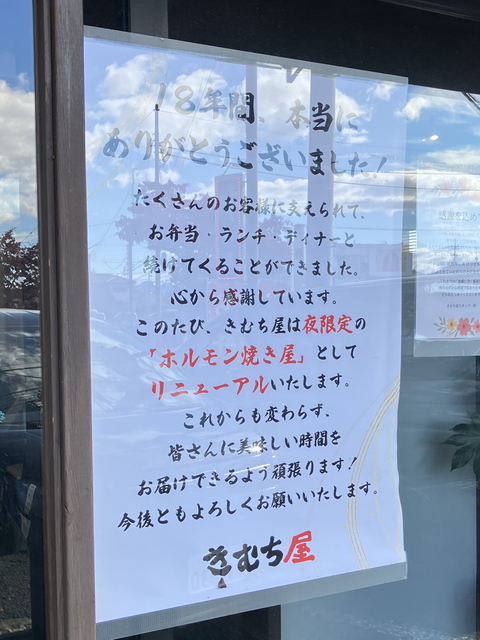 18年間、本当に
ありがとうございました!
たくさんのお客様に支えられて、
お弁当・ランチ・ディナーと
続けてくることができました。
心から感謝しています。
このたび、きむち屋は夜限定の
「ホルモン焼き屋」として
リニューアルいたします。
これからも変わらず、
皆さんに美味しい時間を
お届けできるよう頑張ります!
今後ともよろしくお願いいたします。
きむち屋
感謝を込め